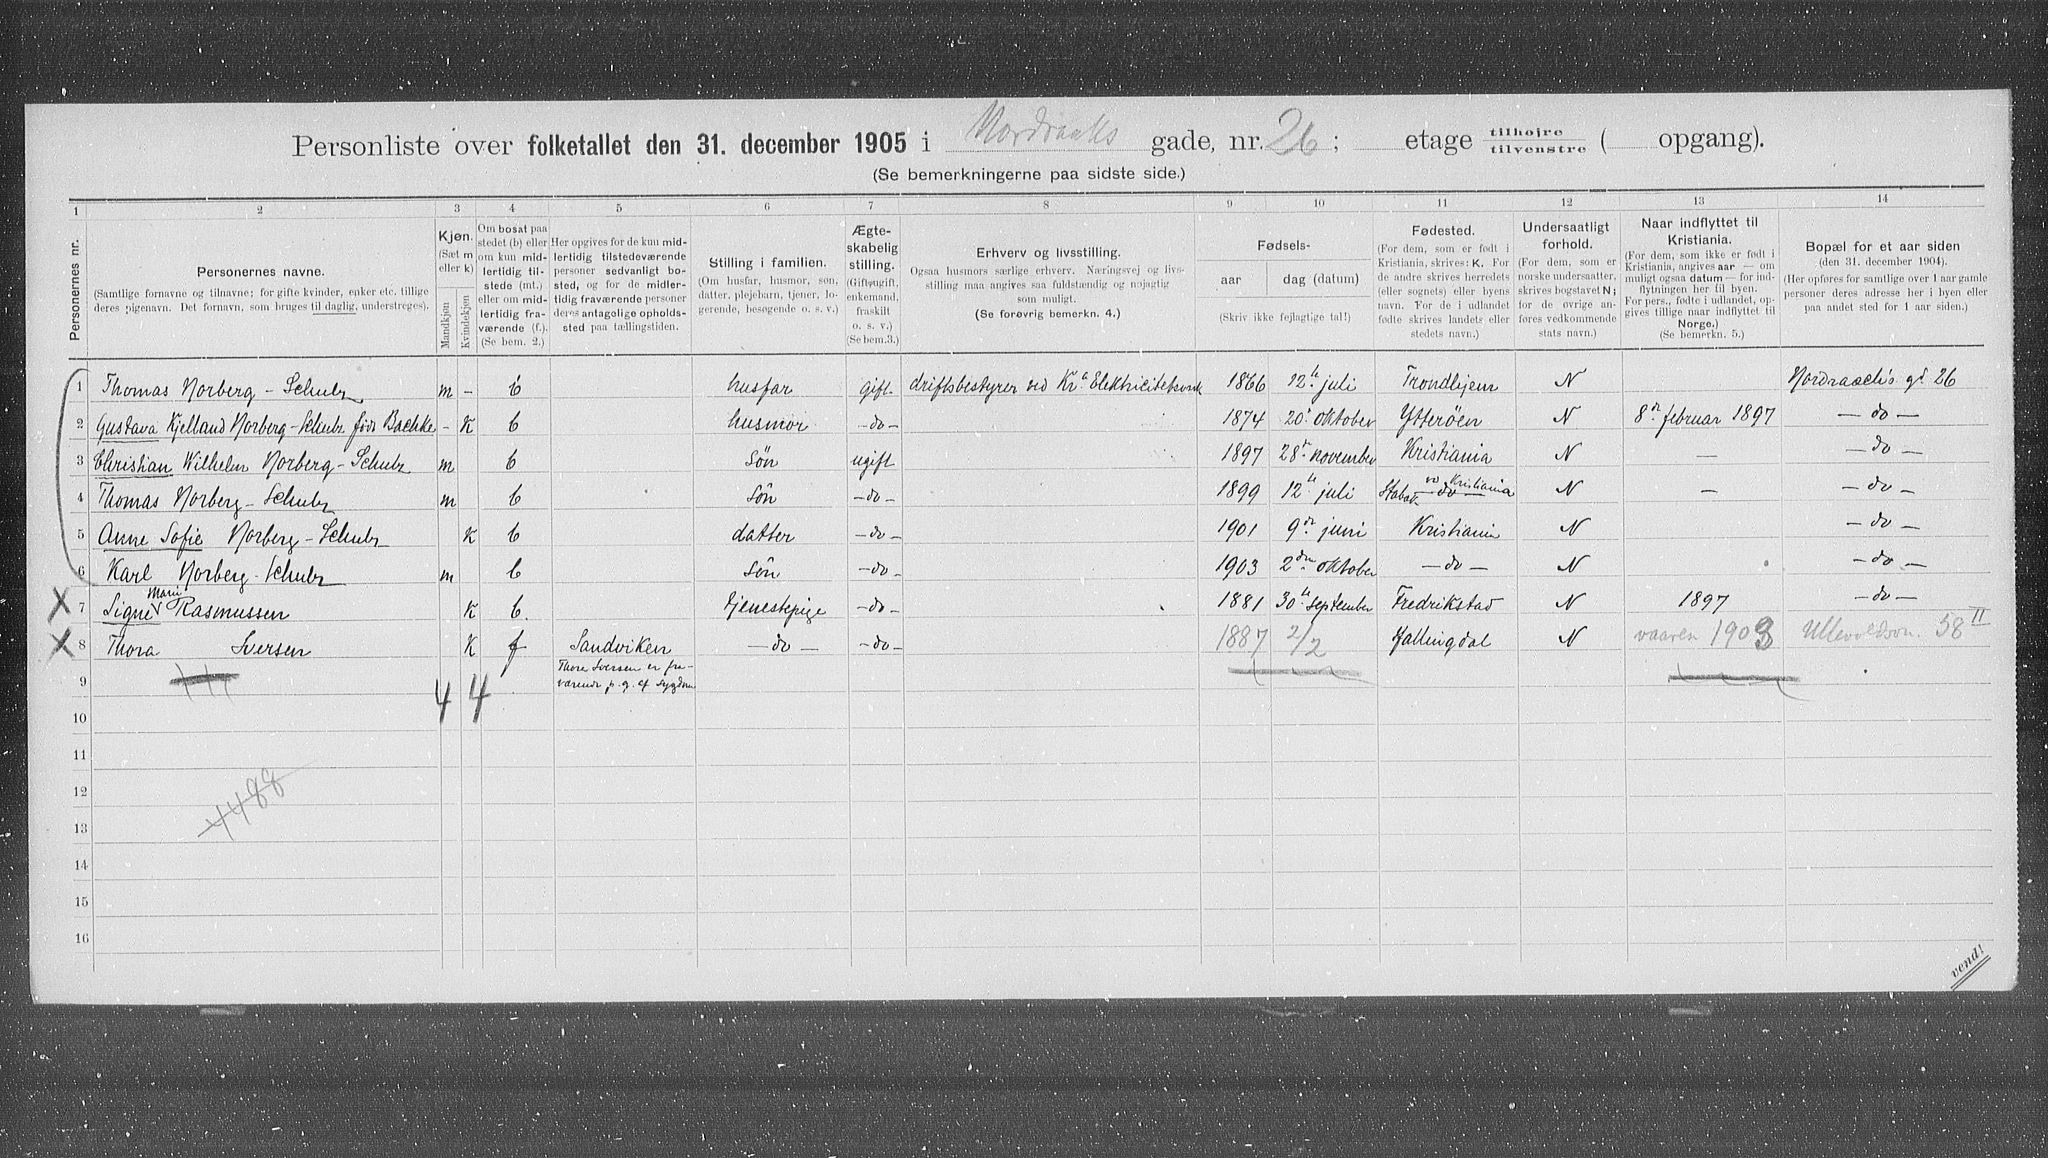 Personliste over folketallet den 31. december 1905 i Nordraaks gade, nr. 26; etage tilhøjre tilvenstre ( opgang).
(Se bemerkningerne paa sidste side.)
1 2 3 4 5 6 7 8 9 10 11 12 13 14
Personernes nr.
Personernes navne.
(Samtlige fornavne og tilnavne; for gifte kvinder, enker etc. tillige
deres pigenavn. Det fornavn, som bruges til daglig, understreges).
Kjøn.
(Sæt m
eller k)
Mandkjøn
Kvindekjøn
Om bosat paa
stedet (b) eller
om kun mid-
lertidig til-
stede (mt.)
eller om mid-
lertidig fra-
værende (f.).
(Se bem. 2.)
Her opgives for de kun mid-
lertidig tilstedeværende
personer sedvanligt bo-
sted, og for de midler-
tidig fraværende personer
deres antagelige opholds-
sted paa tællingstiden.
Stilling i familien.
(Om husfar, husmor, søn,
datter, plejebarn, tjener, lo-
gerende, besøgende o. s. v.)
Ægte-
skabelig
stilling.
(Gift, ugift,
enkemand,
fraskilt
o. s. v.)
(Se bem.3.)
Erhverv og livsstilling.
Ogsaa husmors særlige erhverv. Næringsvej og livs-
stilling maa angives saa fuldstændig og nøjagtig
som muligt.
(Se forøvrig bemerkn. 4.)
Fødsels-
aar
dag (datum)
(Skriv ikke fejlagtige tal!)
Fødested.
(For dem, som er født i
Kristiania, skrives: K. For
de andre skrives herredets
(eller sognets) eller byens
navn. For de i udlandet
fødte skrives landets eller
stedets navn.)
Undersaatligt
forhold.
(For dem, som er
norske undersaatter,
skrives bogstavet N;
for de øvrige an-
føres vedkommende
stats navn.)
Naar indflyttet til
Kristiania.
(For dem, som ikke er født i
Kristiania, angives aar — om
muligt ogsaa datum — for ind-
flytningen her til byen.
For pers., fødte i udlandet, op-
gives tillige naar indflyttet til
Norge.)
(Se bemerkn. 5.)
Bopæl for et aar siden
(den 31. december 1904).
(Her opføres for samtlige over 1 aar gamle
personer deres adresse her i byen eller
paa andet sted for 1 aar siden.)
1 Thomas Norberg-Schulz m - b husfar gift driftsbestyrer ved Kra Elektricitetsverk 1866 12te juli Trondhjem N Nordraachs gd 26
2 Gustava Kjelland Norberg-Schulz født Bachke - K b husmor - do - 1874 20 oktober Ytterøen N 8de februar 1897 - do -
3 Christian Wilhelm Norberg-Schulz m b søn ugift 1897 28de november Kristiania N - - do -
4 Thomas Norberg-Schulz m b søn - do - 1899 12te juli Stabæk - do - ved Kristiania N - - do -
5 Anne Sofie Norberg-Schulz K b datter - do - 1901 9de juni Kristiania N - do -
6 Karl Norberg-Schulz m b søn - do - 1903 2den oktober - do - N - do -
X 7 Signe Marie Rasmussen K b. tjenestepige - do - 1881 30te september Fredrikstad N 1897 - do -
X 8 Thora Iversen K f Sandviken - do - - do - 1887 2/2 Hallingdal N vaaren 1903 Ullevoldsvn. 58 II
Thora Iversen er fra-
værende p. g. af sygdom
9
4 4
10
11
12
4488
13
14
15
16
vend!